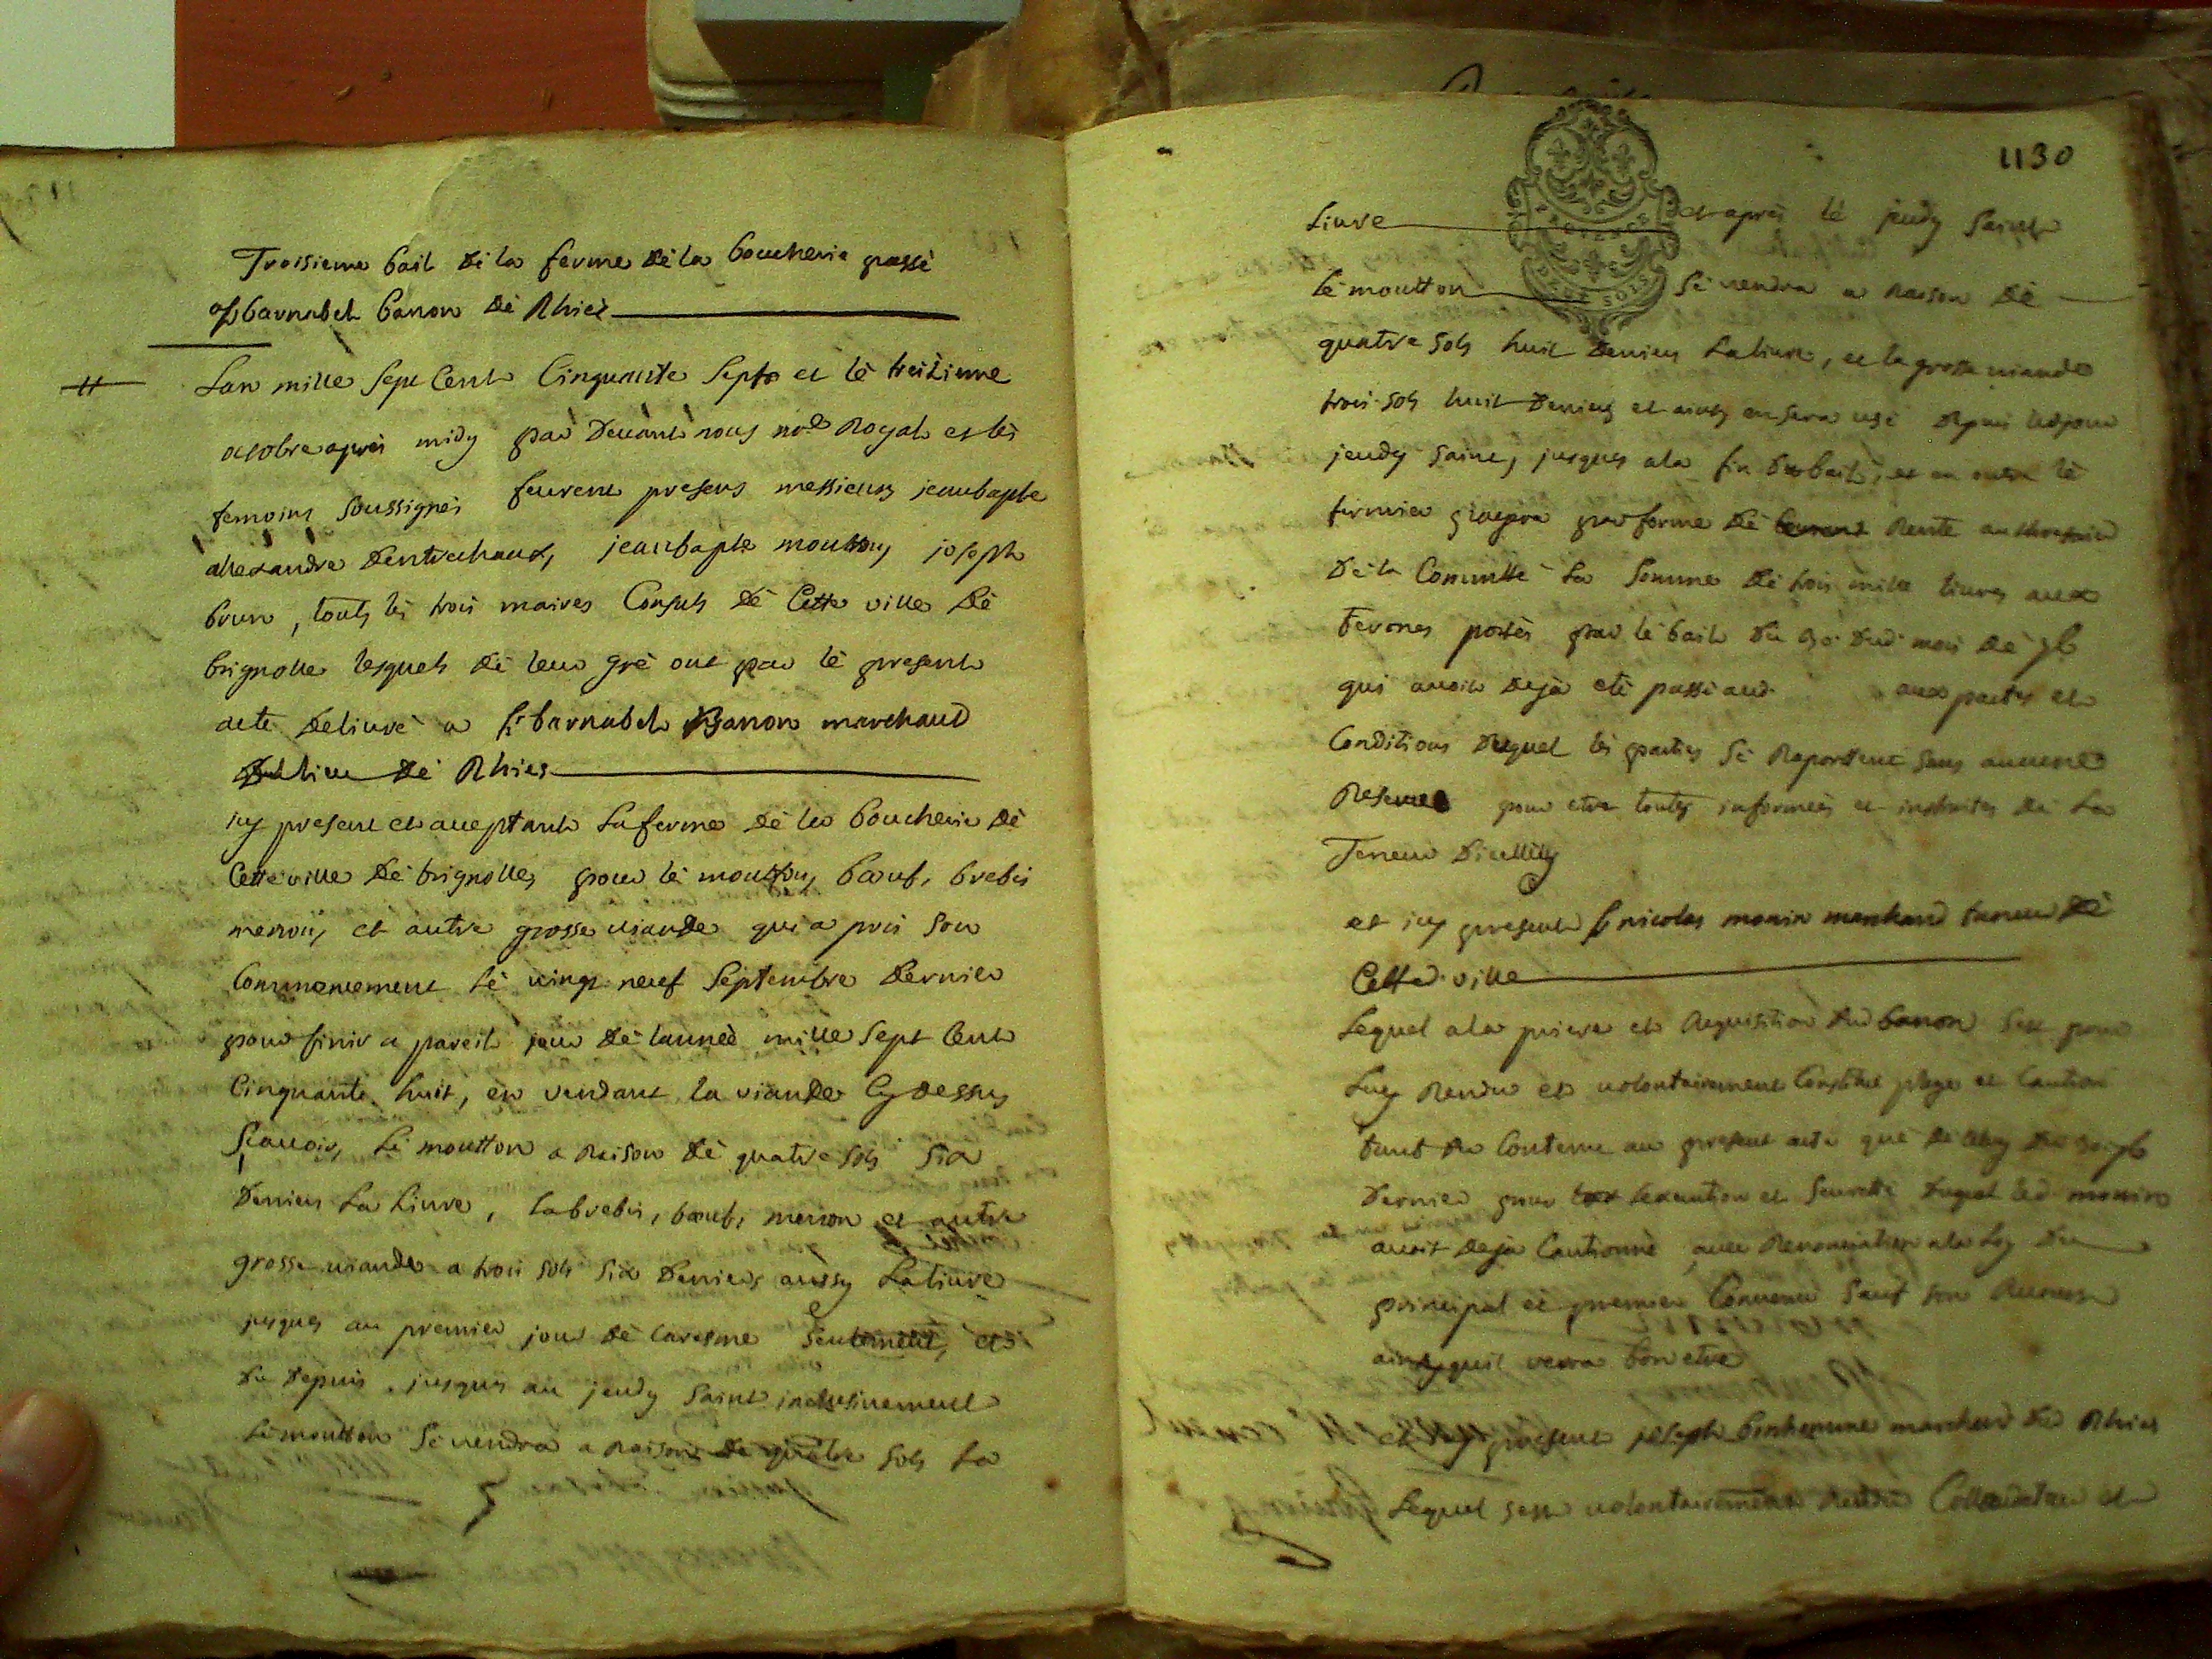 Troisieme bail dè la ferme dè la boucherie passé
a sr barnabeh banon dè Rhiés
Lan mille sept cent cinquante sept et lè treizieme
octobre aprés midy par devant nous nore Royal et lés
temoins soussignés feurent presens messieurs jeanbapte
allexandre dentrechaux, jeanbapte moutton, joseph
brun, touts lés trois maires consuls dè cette ville dè
brignolle lesquels dè leur grè ont par lè present
acte delivrè a sr barnabeh Banon marchand
du lieu dè Rhiés
icy present et acceptant la ferme dè la boucherie dè
cette ville dè brignolles, pour lè moutton, bœuf, brebis
menon, et autre grosse viande qui a pris son
commencement lè vingt neuf septembre dernier
pour finir a pareil jour dè lannèe mille sept cent
cinquante huit, en vendant la viande cy dessus
scavoir, lè moutton a raison dè quatre sols six
deniers la livre, la brebis, bœuf, menon et autre
grosse viande a trois sols six deniers aussy la livre
jusques au premier jour dè caresme seulement, et
du depuis jusques au jeudy saint inclusivement
lè moutton sè vendra a raison de quatre sols la
1130
livre et aprés lè jeudy saint
lè moutton sè vendra a raison dè
PROVENCE
DEUX SOLS
quatre sols huit deniers la livre, et la grosse viande
trois sols huit deniers et ainsy en sera usè depuis led jour
jeudy saint, jusques a la fin du bail, et en outre lè
fermier payera par forme dè rente au thresorier
dè la commtté la somme dè trois mille livres aux
termes portés par lè bail du dud mois dè 7bre
qui avoit dejà etè passé aud aux pactes et
conditions duquel lés parties sè raportent sans aucune
reserve pour etre toutes informées et instruites de la
teneur dicelluy
et icy present sr nicolas monin marchand taneur dè
cette ville
lequel a la priere et requisition dud banon sest pour
luy rendu et volontairement constitué plege et caution
tant du contenu au present acte que de celluy du 7bre
dernier pour lexecution et seuretté duquel led monin
avoit dejà cautionné, avec renonciation a la loy du
principal et premier convenu sauf son recours
ainsy quil verra bon etre
et icy present joseph bonhomme marchand dud Rhiés
lequel sest volontairement rendu collaudateur et